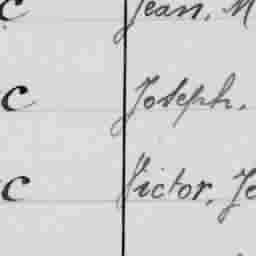 c Jean, M
c Joseph,
c Victor, Je